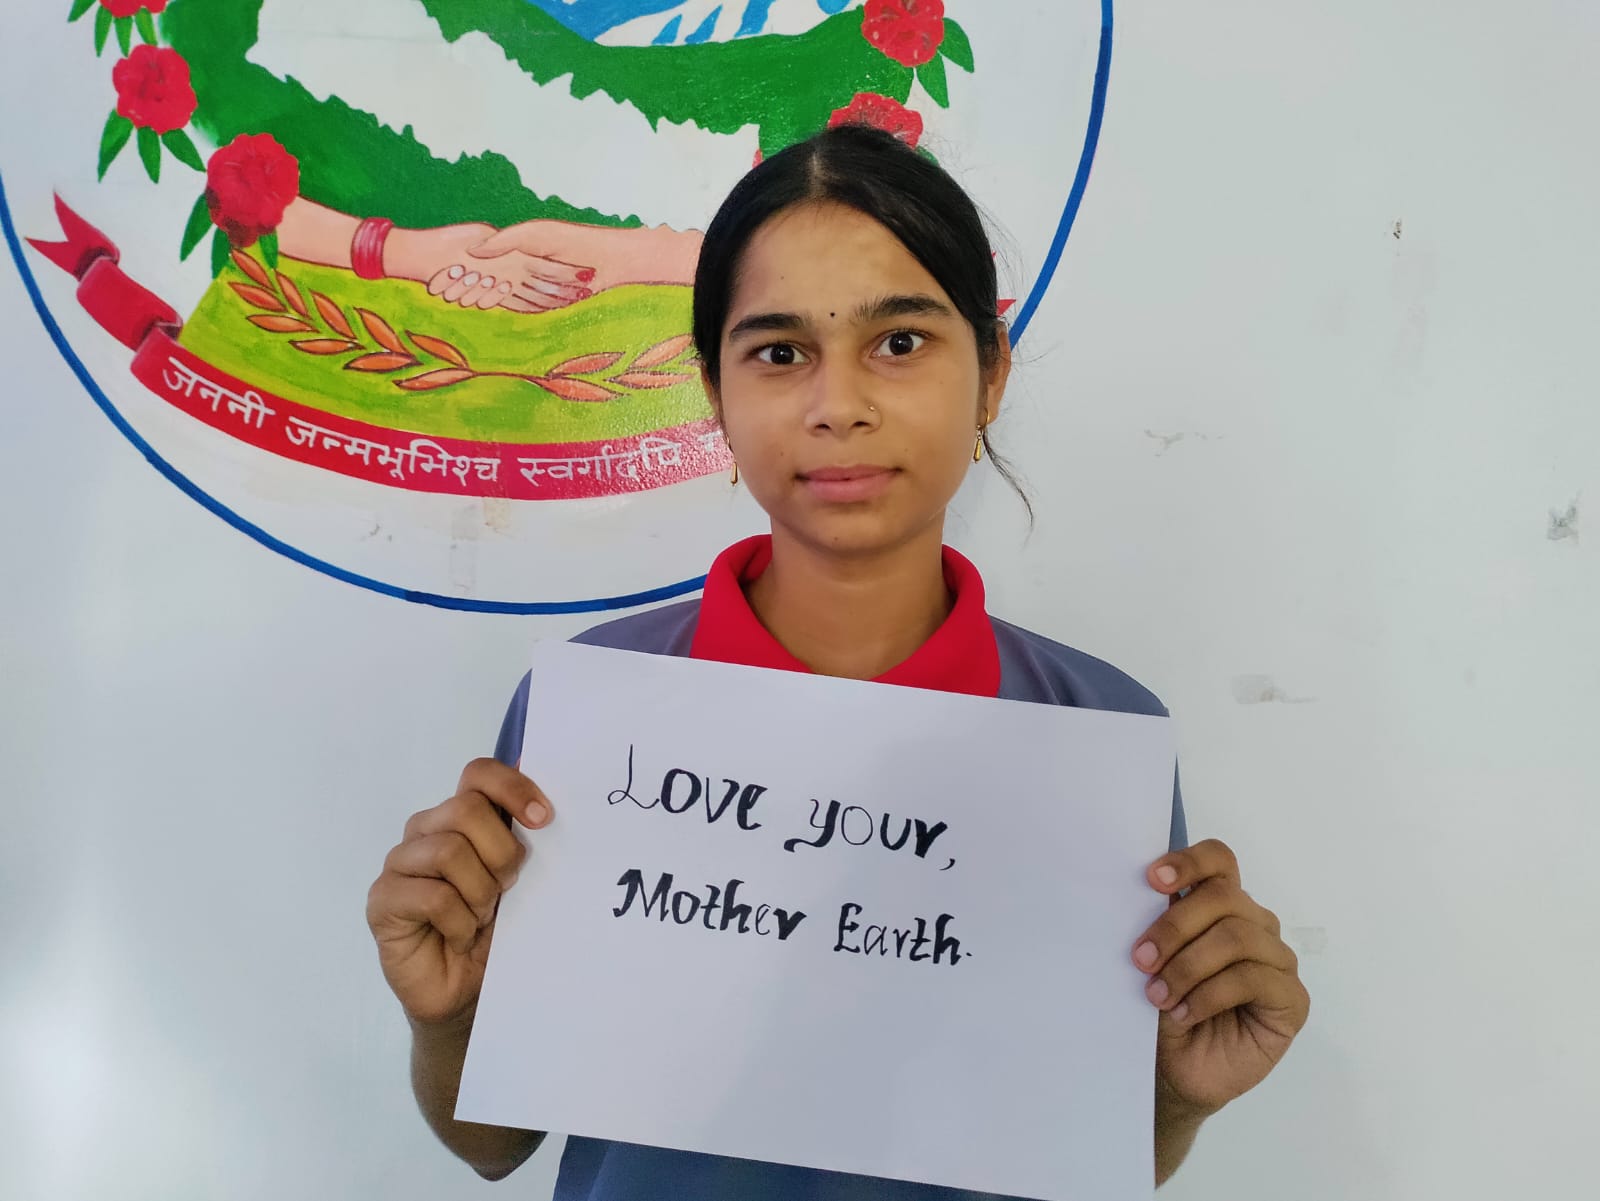 जननी जन्मभूमिश्च स्वर्गादपि
Love your,
Mother Earth.